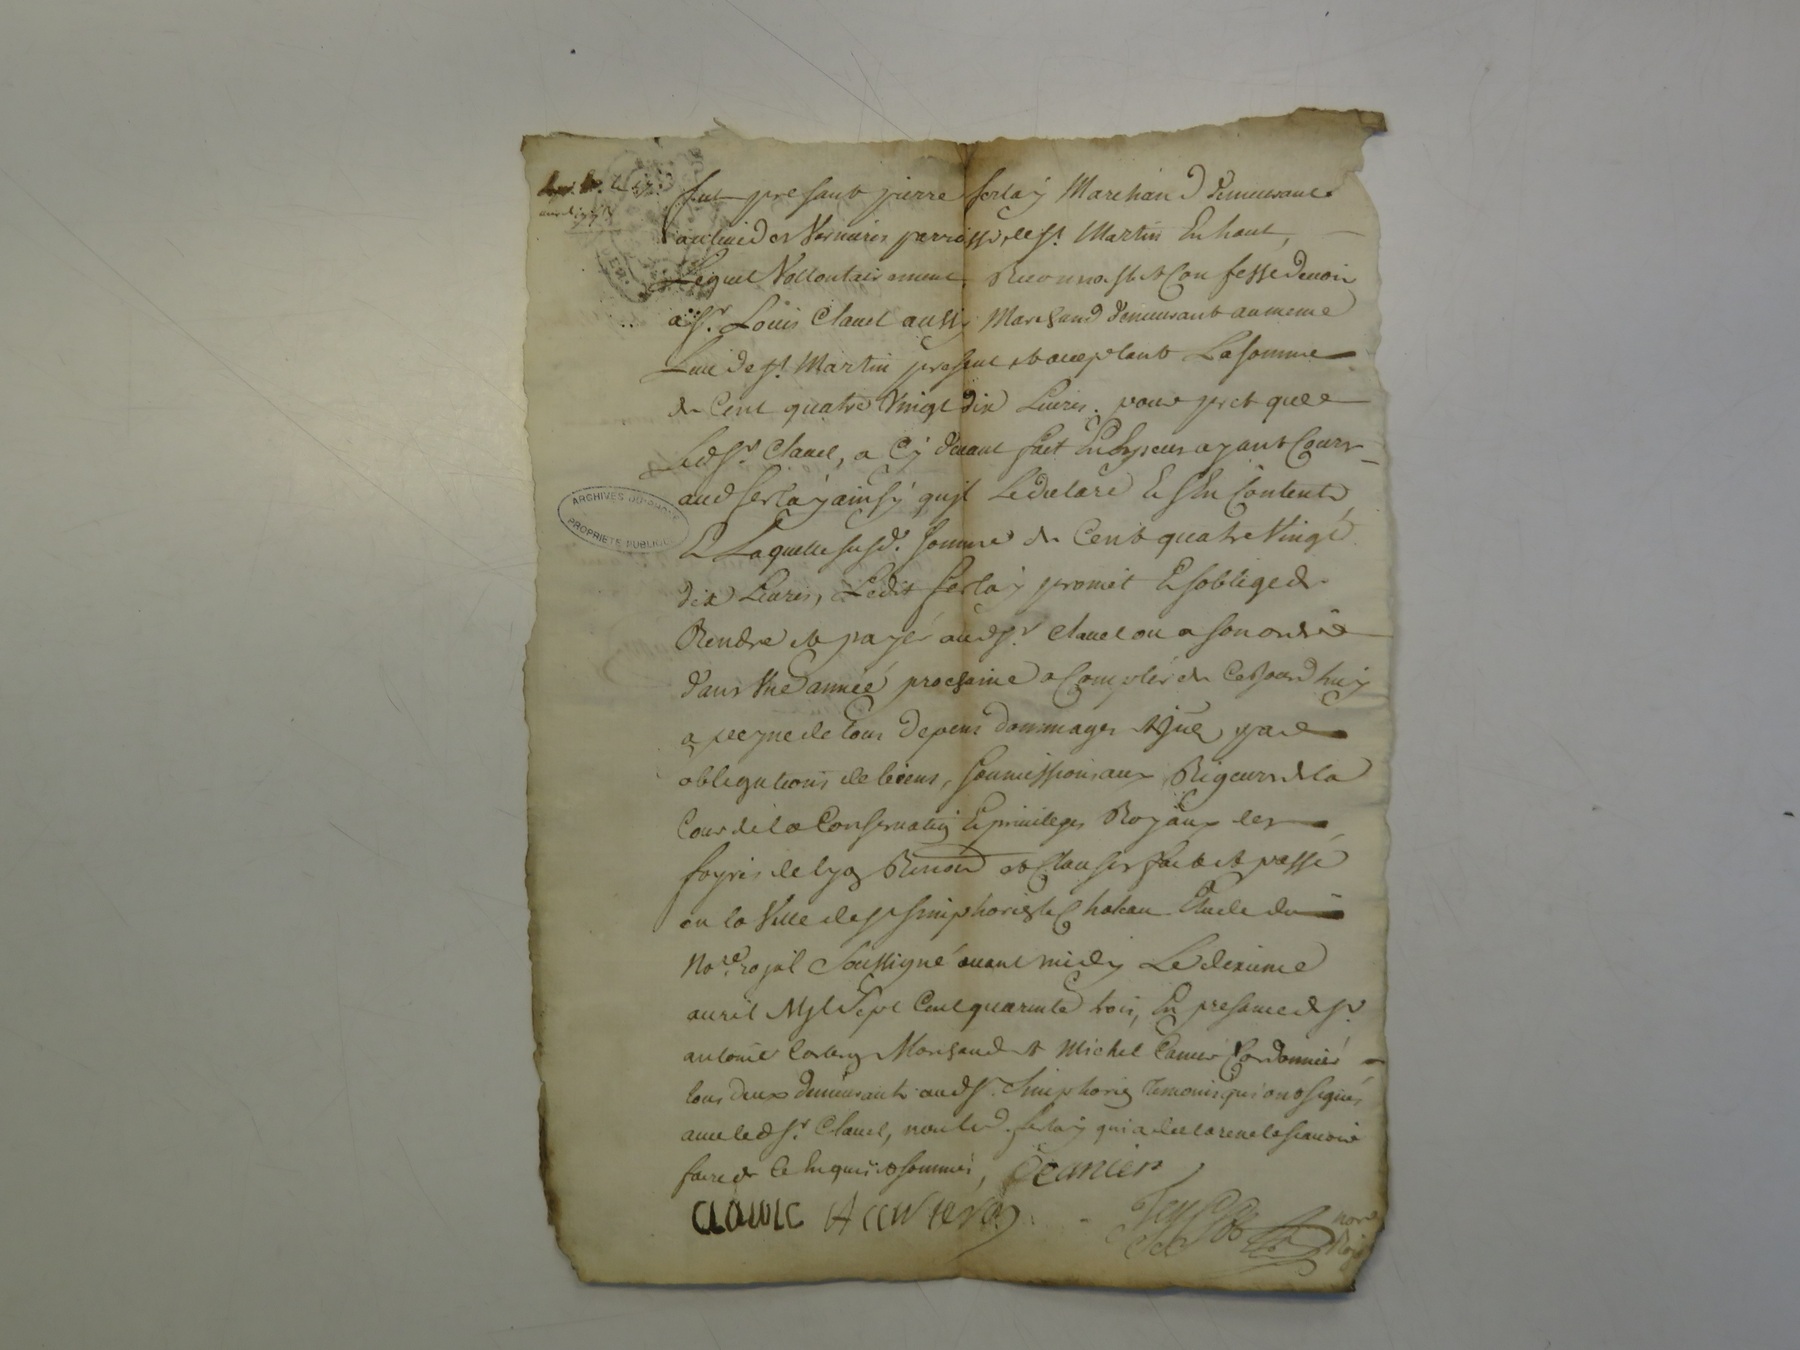 fut presant pierre ferlay Marchand demeurant
au lieu des Verrieres parroisse de st. Martin En haut,
Lequel Vollontairement Reconnoist et Confesse devoir
a sr. Louis Clauel aussy Marchand demeurant au meme
Lieu de st. Martin present et acceptant La somme
de Cent quatre Vingt dix Liures. pour pret que
Ledsr. Clauel, a Cy deuant fait En Especes ayant Cours
aud ferlay ainsy qu'jl Le declare Et s'En Contente
Et Laquelle susd. somme de Cent quatre Vingt
dix Liures, Ledit ferlay promet Et s'oblige de
Rendre et payer audsr. Clauel ou a son ordre
dans Vne année prochaine a Compter de Cejourd'huy
a peyne de tous depens dommages et par
obligations de biens, soumissions aux Rigeurs de la
Cour de la Conseruation Et priuileges Royaux des
foyres de lyon Renon et Clauses fait et passé
en la Ville de st simphorien le Chateau Etude du
Nore. royal soussigné auant midy Le dixieme
auril Mjl sept Cent quarente trois, En presance de sr.
antoine Marchand et Michel Cordonnier
tous deux demeurants aud st. simphorien temoins qui ont signés
auec ledsr. Clauel, non led. ferlay qui a declaré ne le scauoir
faire de Ce Enquis et sommé,
CLAVEL
nore
Roy
ARCHIVES DU RHONE
PROPRIETE PUBLIQUE